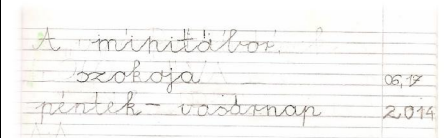 A minitábor.
szokoja 06,17
péntek - vasárnap 2014